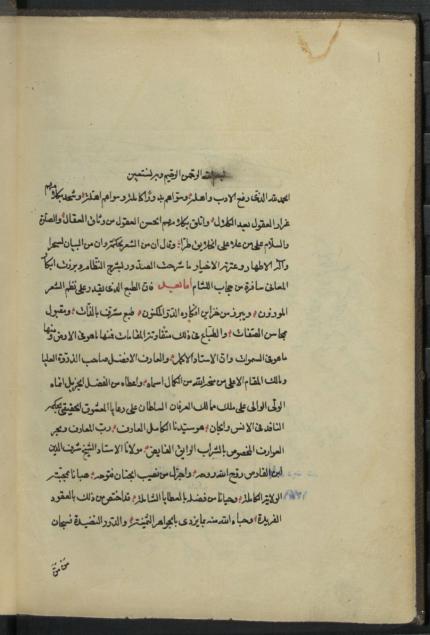 بسم الله الرحمن الرحيم وبه نستعين
الحمد لله الذي رفع الادب واهله وسواهم
غرار العقول بعد الكلول واتلق بكلامهم الحسن العقول من وثاق العقال والصلوة
والسلام على من علا على الخلايق طرا وقال ان من الشعر لحكمة وان من البيان لسحرا
وآله الاطهار وعترته الاخيار ما شرحت الصدور لشرح النظام وبرزت ابكار
المعاني سافرة من حجاب اللثام أما بعد فان الطبع الذي يقتدر على نظم الشعر
الموزون ويبرز من خزاين افكاره الدر المكنون طبع شرف بالذات ومقبول
محاسن الصفات والطباع في ذلك متفاوتة المقامات فمنها ما هو في الارض ومنها
ما هو في السموات وان الاستاذ الاكمل والعارف الافضل صاحب الذروة العليا
ومالك المقام الاعلى من منحه الله من الكمال اسماه واعطاه من الفضل الجزيل
الولي الوالي على ملك ممالك العرفان السلطان على رعايا المعشوق الحقيقي بحكمه
النافذ في الانس والجان هو سيدنا الكامل المعارف رب المعارف وبحر
العوارف المخصوص بالشراب الرايق الفايض مولانا الاستاد الشيخ شرف الدين
ابن الفارض روح الله روحه واجزل من نصيب الجنان فتوحه حبانا بمحبته
الولاية الكاملة وحيانا من فضله بالعطايا الشاملة قد اختص من ذلك بالعقود
الفريدة وحباه الله منه بما يزدري بالجواهر الثمينة والدرر النضيدة فسبحان
من من